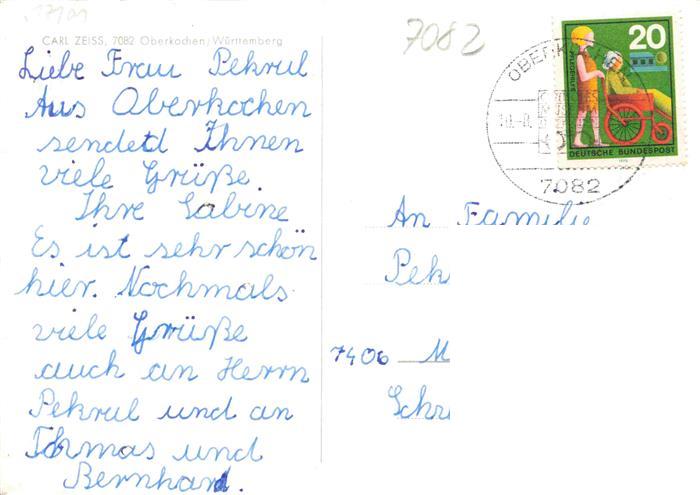 CARL ZEISS, 7082 Oberkochen/Württemberg
7082
Liebe Frau Pekrul
Aus Oberkochen
sendetd Ihnen
viele Grüße
Ihre Sabine
Es ist sehr schön
hier. Nochmals
viele Grüße
auch an Herrn
Pekrul und an
Thomas und
Bernhard.
20
PFLEGEHILFE
DEUTSCHE BUNDESPOST
OBERK
7082
An Familie
Pek
7406 M
Schr